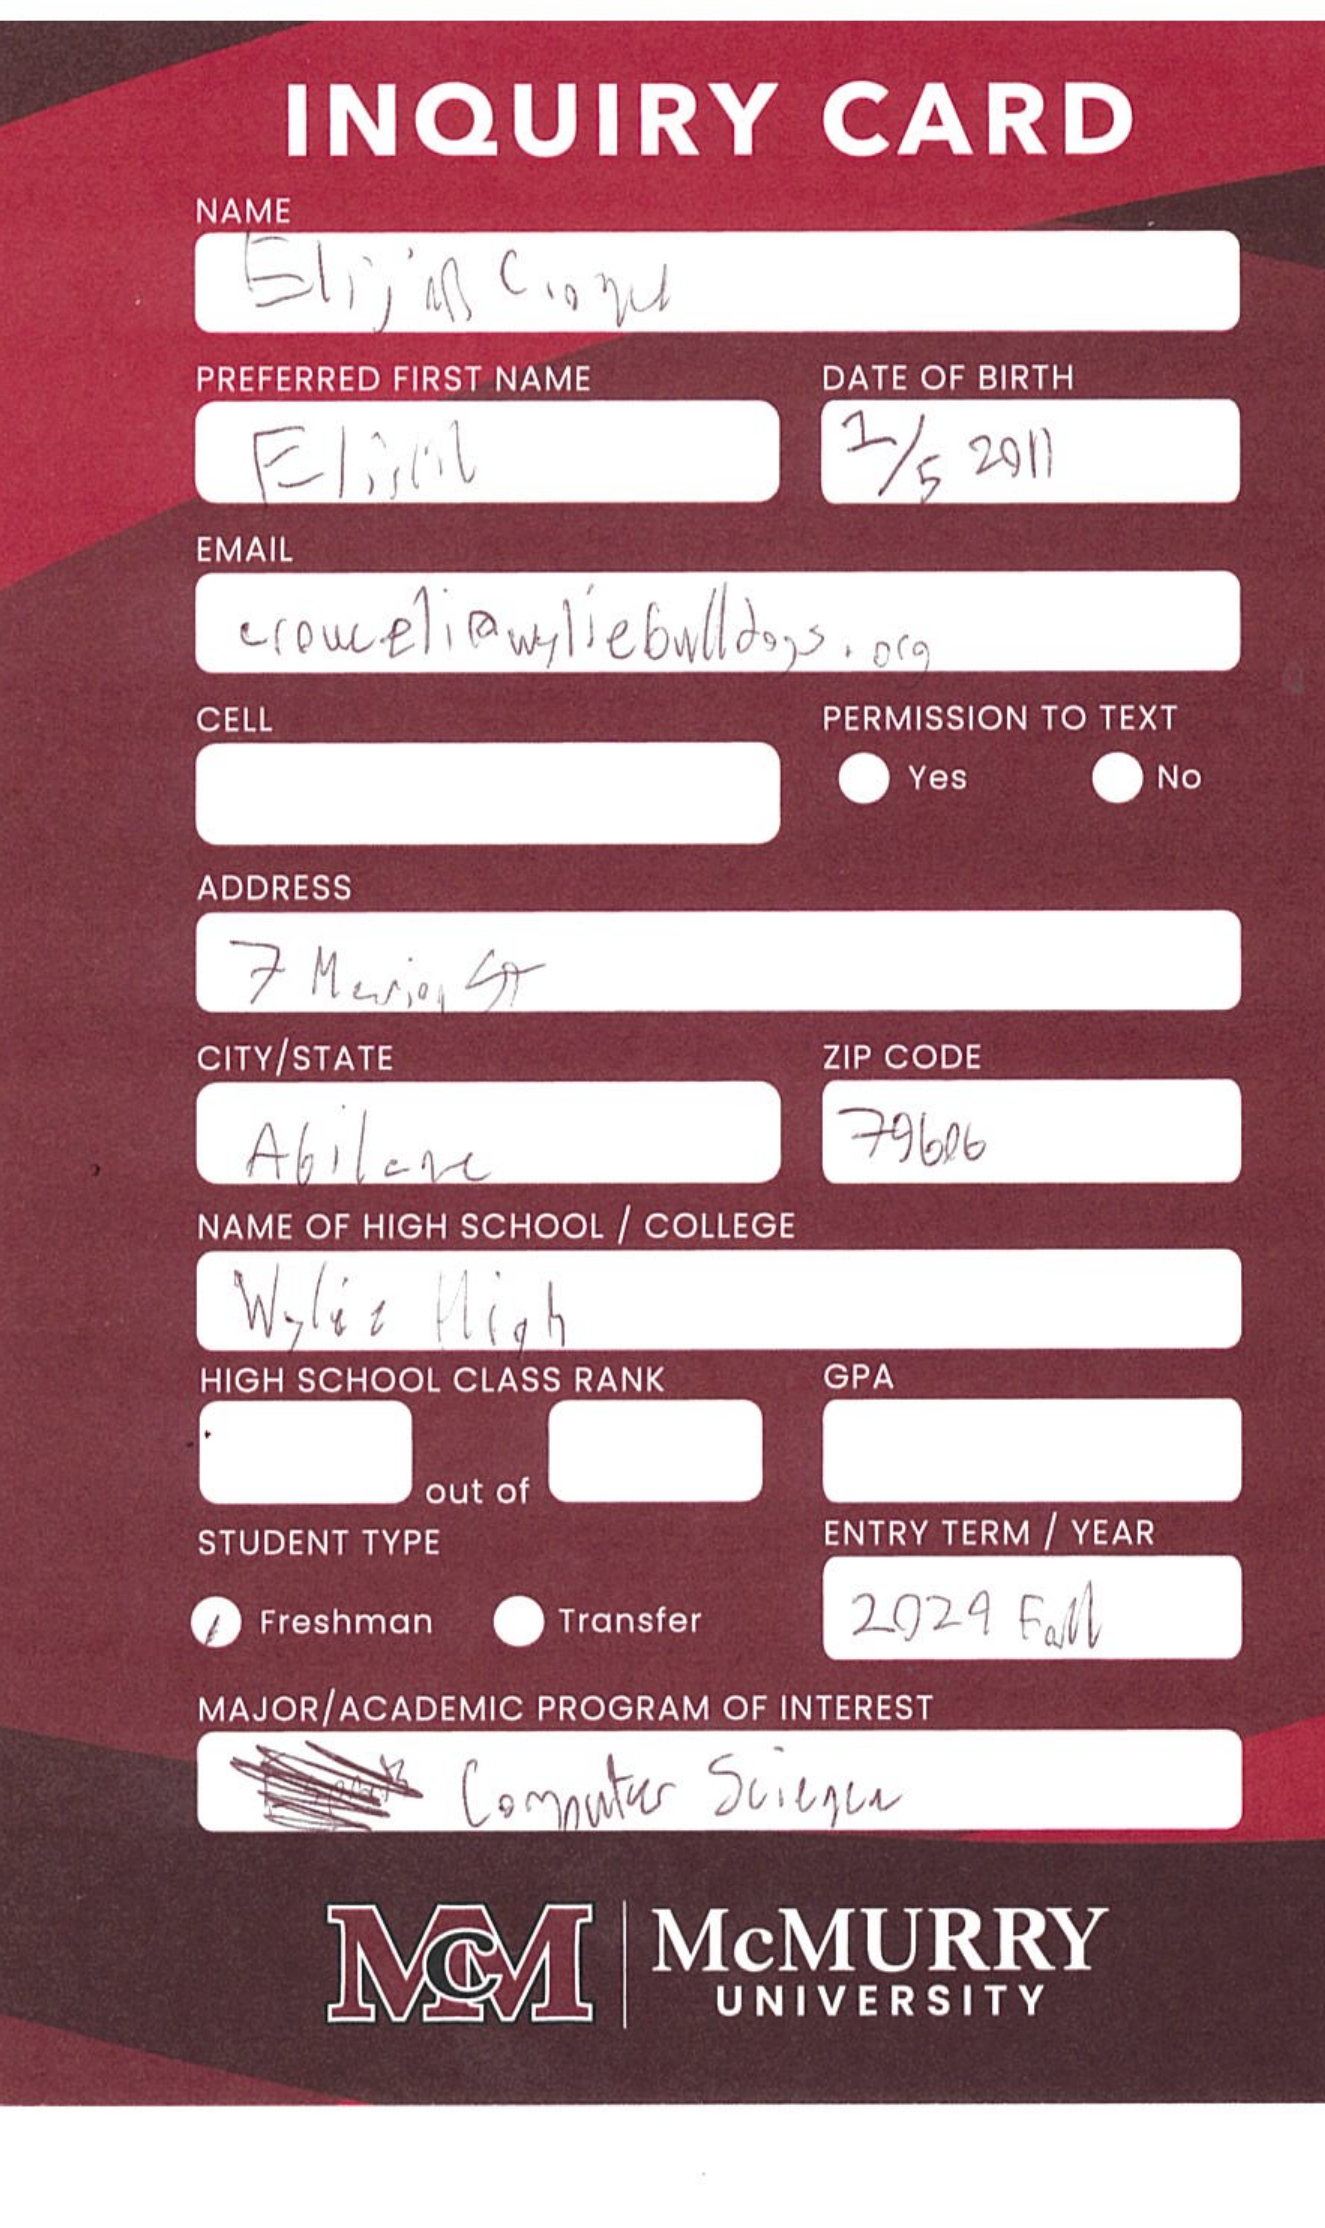 INQUIRY CARD
NAME
Elijah
PREFERRED FIRST NAME
Elijah
DATE OF BIRTH
1/5 2011
EMAIL
crouceli@wyliebulldogs.org
CELL
PERMISSION TO TEXT
Yes No
ADDRESS
7 Marion St
CITY/STATE
Abilene
ZIP CODE
79606
NAME OF HIGH SCHOOL / COLLEGE
Wylie High
HIGH SCHOOL CLASS RANK
out of
GPA
STUDENT TYPE
Freshman Transfer
ENTRY TERM / YEAR
2029 Fall
MAJOR/ACADEMIC PROGRAM OF INTEREST
Computer Science
McM
McMURRY
UNIVERSITY